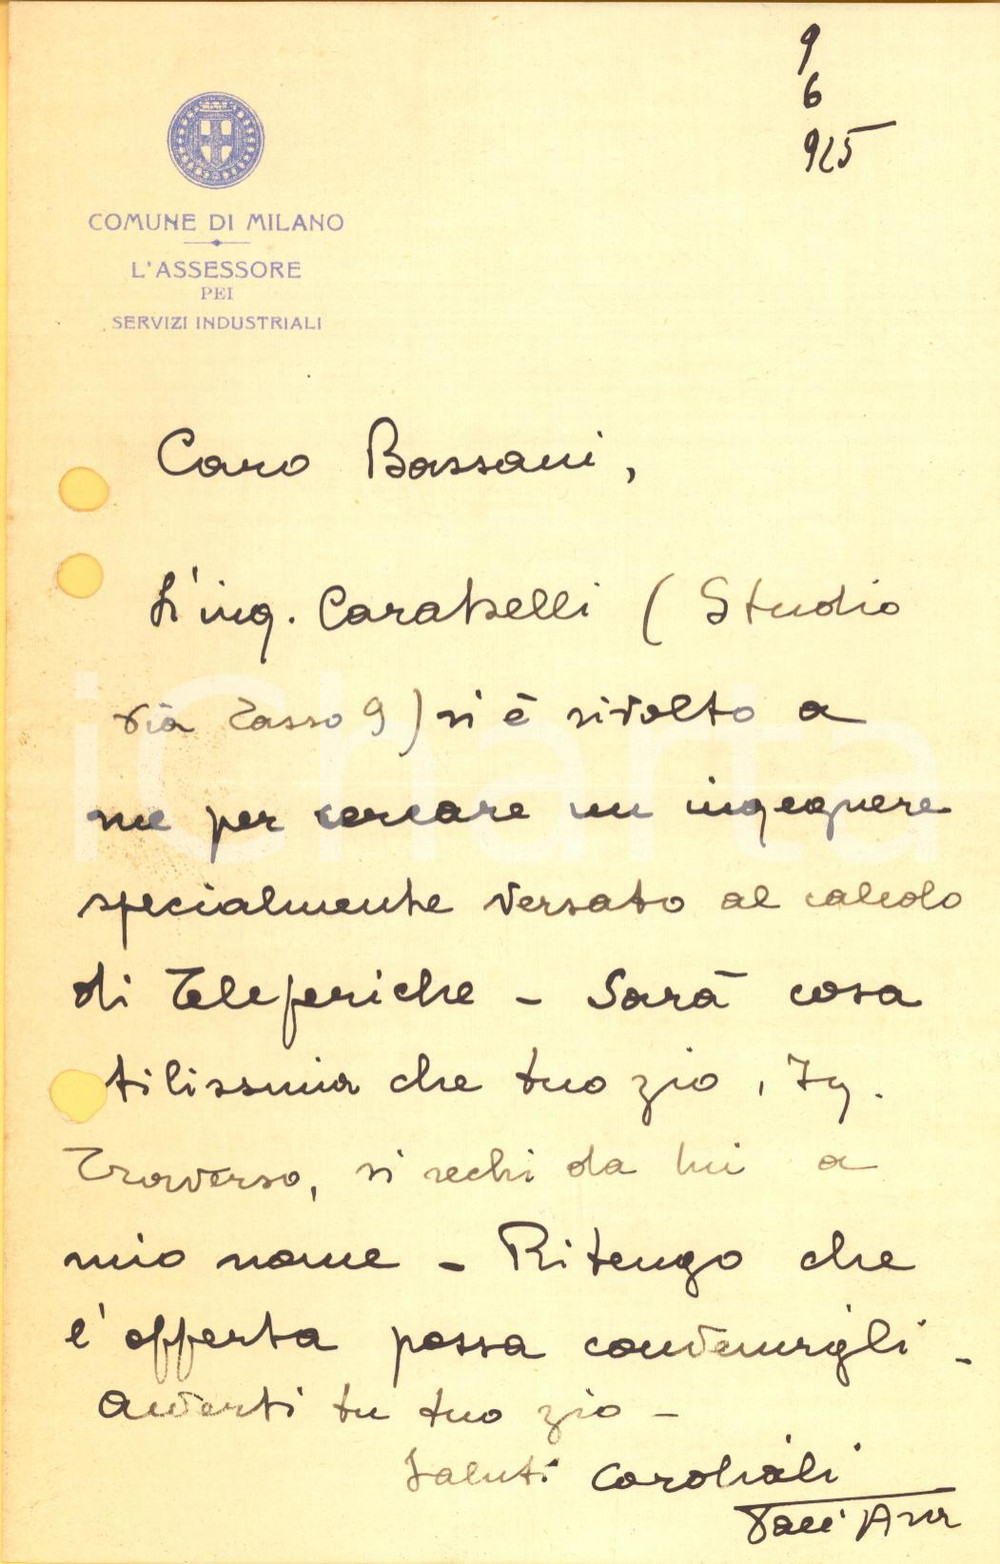 9
6
925
COMUNE DI MILANO
L'ASSESSORE
PEI
SERVIZI INDUSTRIALI
Caro Bassani,
L'ing. Carabelli (Studio
via Tasso 9) si è rivolto a
me per cercare un ingegnere
specialmente versato al calcolo
di Teleferiche - Sarà cosa
tilissima che tuo zio, Ig.
Traverso, si rechi da lui a
mio nome - Ritengo che
l'offerta possa convenirgli -
Avverti tu tuo zio -
Saluti cordiali
iCharta